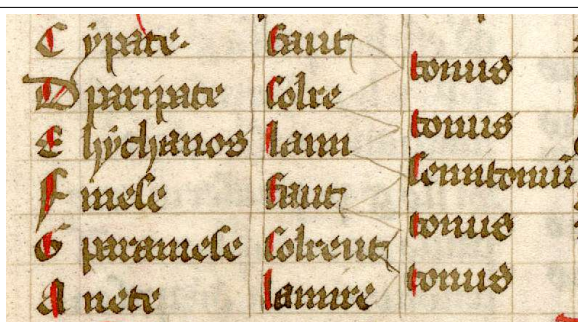 C ypate. Faut
tonus
D paripate Solre
tonus
E lychanos Lami
Semitoniū
F mese Faut
tonus
G paramese Solreut
tonus
A nete Lamire